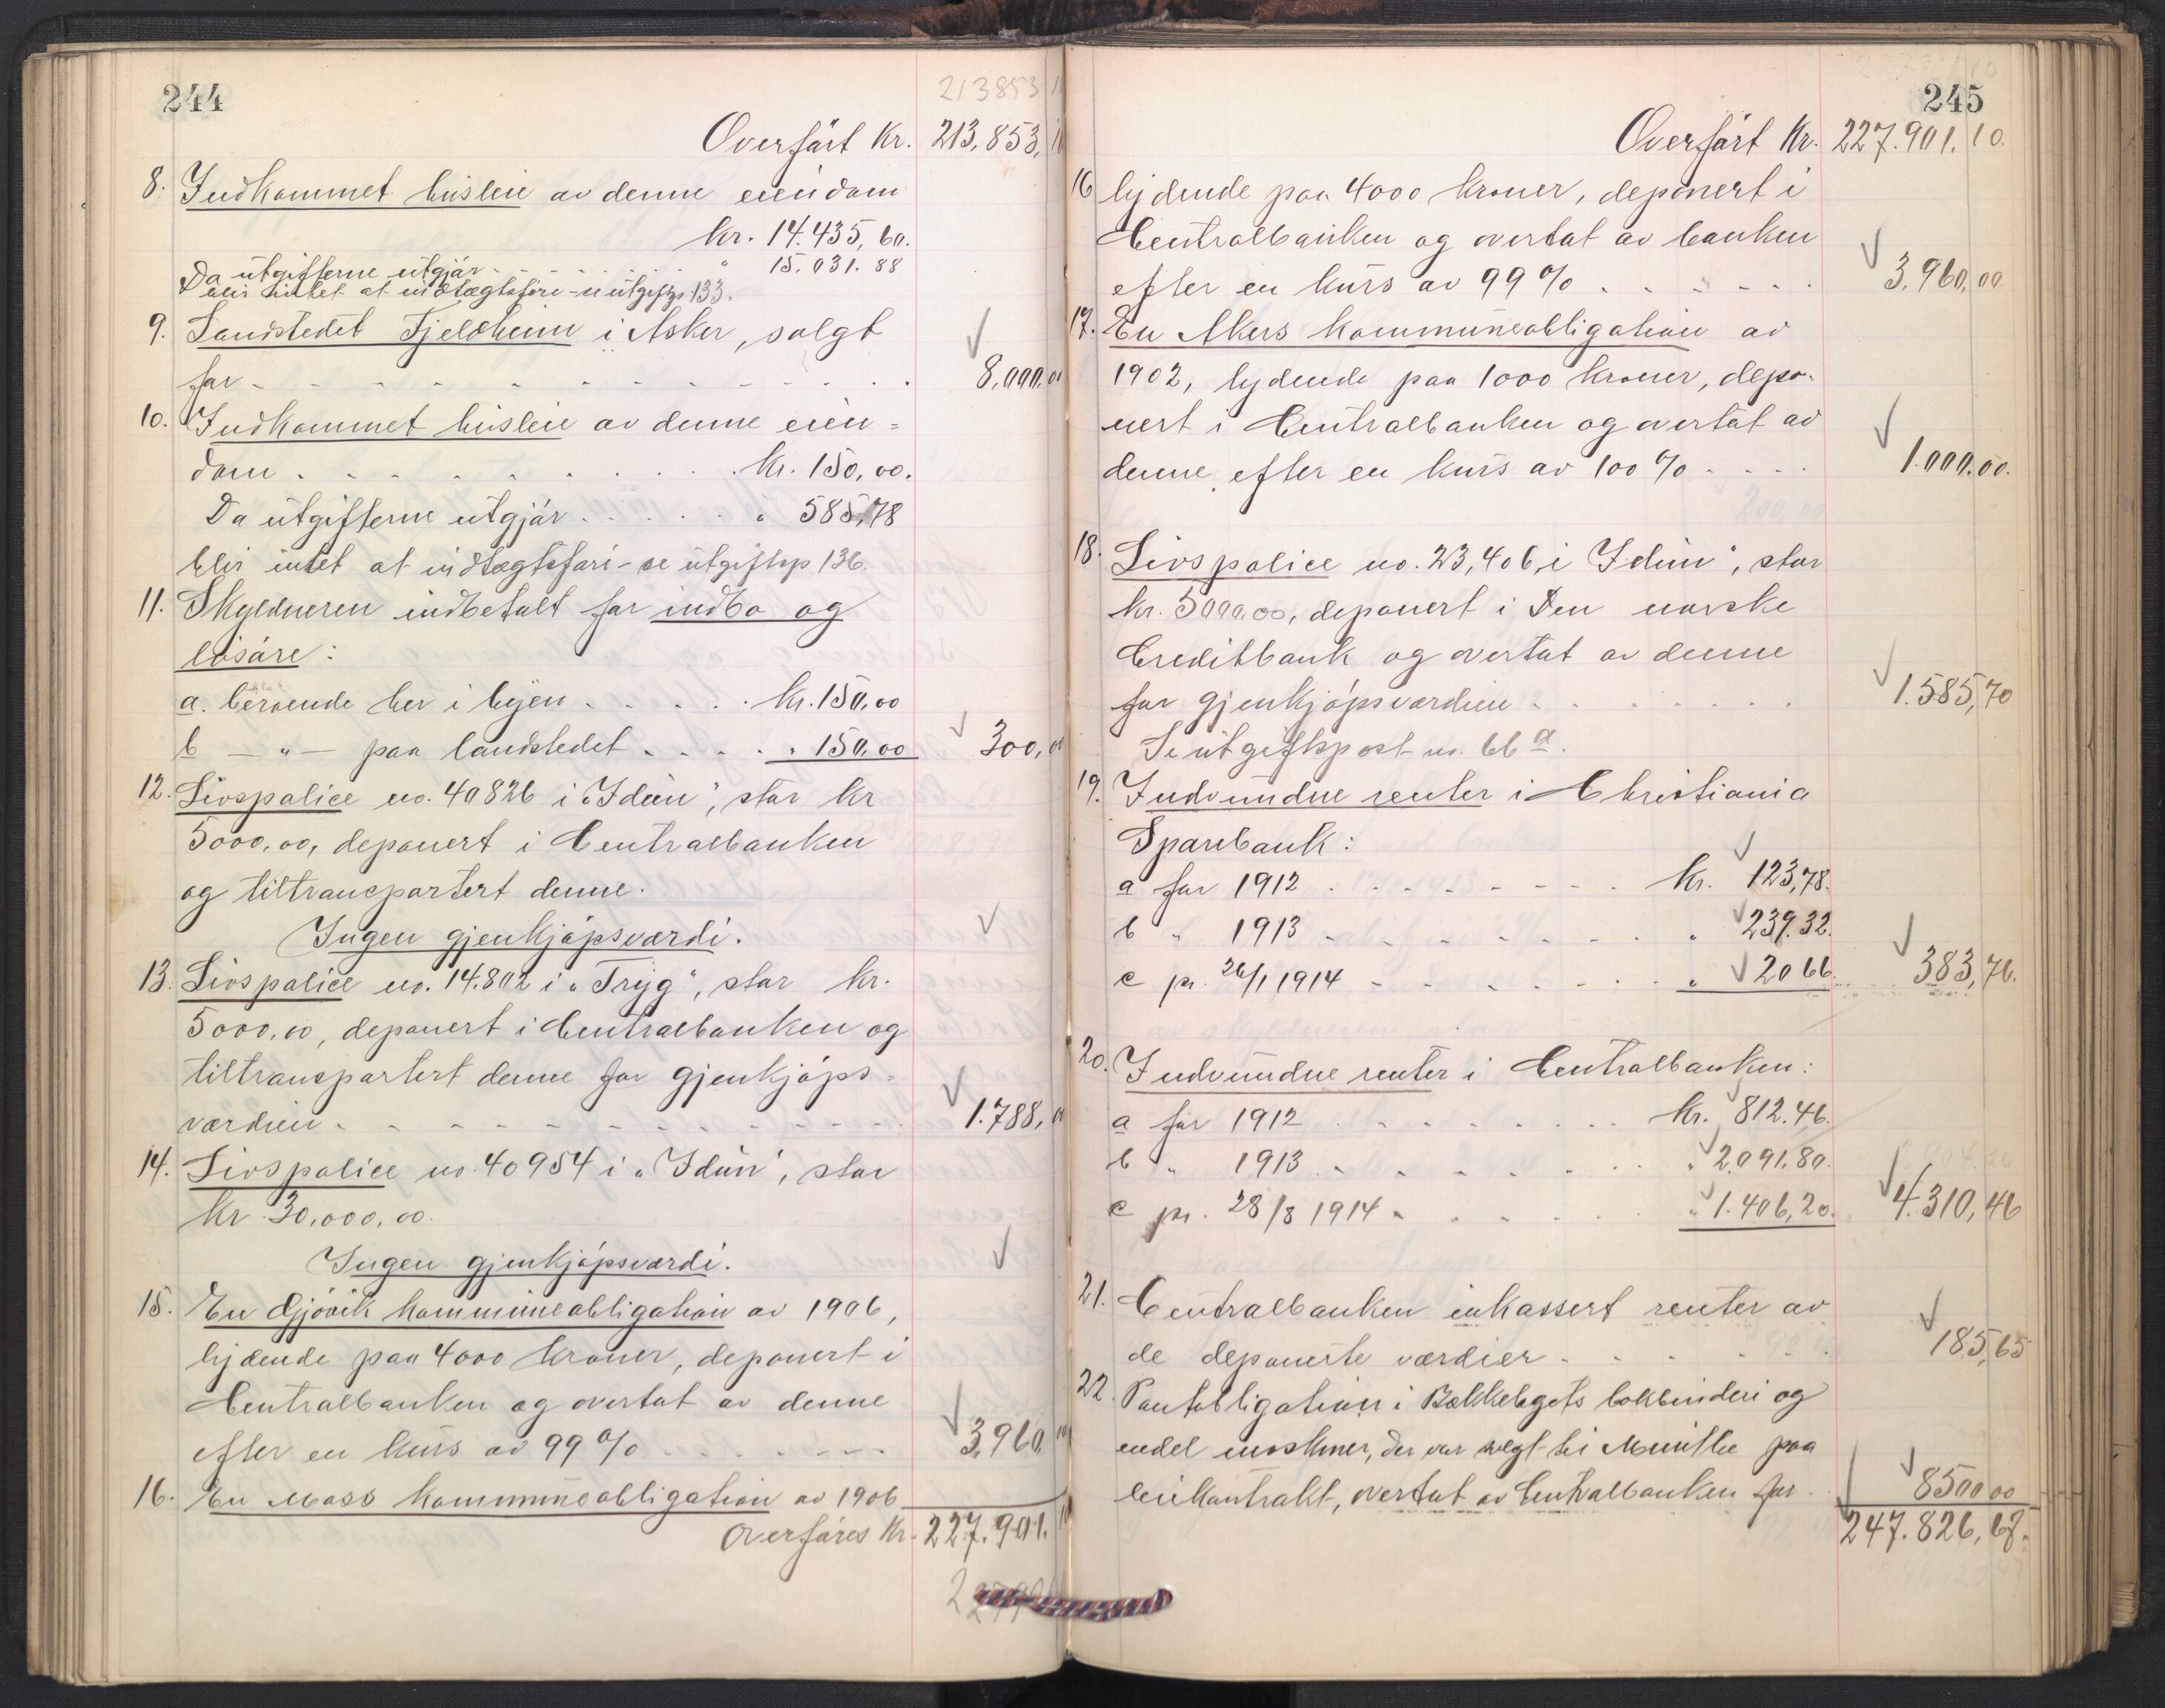 244
213853 1
Overført Kr. 213,853, 10
8. Indkommet husleie av denne eiendom
kr. 14.435, 60.
Da utgifterne utgjør . . . . . " 15.031.88
blir intet at indtægtsføre - se utgiftsp. 133.
9. Landstedet Fjeldheim i Asker, solgt
for - - - - - - - - - - - 8,000,00
10. Indkommet husleie av denne eien=
dom . . . . . . . . . . kr. 150,00.
Da utgifterne utgjør . . . . . . " 585,78
blir intet at indtægtsføre - se utgiftsp 136.
11. Skyldneren indbetalt for indbo og
løsøre:
a. beroende her i byen . . . . . kr. 150,00
b — " — paa landstedet . . . . " 150,00 300,00
12. Livspolice no. 40826 i "Idun", stor kr
5000,00, deponert i Centralbanken
og tiltransportert denne.
Ingen gjenkjøpsværdi.
13. Livspolice no. 14.802 i "Tryg", stor kr.
5000,00, deponert i Centralbanken og
tiltransportert denne for gjenkjøps=
værdien - - - - - - - - - - - 1.788,00
14. Livspolice no 40954 i "Idun", stor
Kr 30,000,00.
Ingen gjenkjøpsværdi.
15. En Gjøvik kommuneobligation av 1906,
lydende paa 4000 kroner, deponert i
Centralbanken og overtat av denne
efter en kurs av 99 % . . . . . . . 3,960,00
16. En Moss kommuneobligation av 1906
Overføres Kr. 227.901. 10
245
Overført Kr. 227.901. 10.
16 lydende paa 4000 kroner, deponert i
Centralbanken og overtat av banken
efter en kurs av 99 % . . . . . . 3,960,00.
17. En Akers kommuneobligation av
1902, lydende paa 1000 kroner, depo-
nert i Centralbanken og overtat av
denne efter en kurs av 100 % . . . . 1.000.00.
18. Livspolice no. 23,406, i Idun", stor
kr. 5000.00, deponert i Den norske
Creditbank og overtat av denne
for gjenkjøpsværdien . . . . . . . 1.585,70
Se utgiftspost no. 66 a.
19. Indvundne renter i Christiania
Sparebank:
a for 1912 . . . . . . . . kr. 123,78.
b " 1913 . . . . . . . . " 239.32.
c pr. 26/1 1914 - . . . . . " 20 66. 383,76.
20. Indvundne renter i Centralbanken:
a for 1912 . . . . . . . . kr. 812.46.
b " 1913 . . . . . . . . " 2.091.80.
c pr. 28/8 1914 . . . . . . " 1.406,20. 4.310,46
21. Centralbanken inkassert renter av
de deponerte værdier . . . . . . . 185,65
22. Pantobligation i Bækkelagets bokbinderi og
endel maskiner, der var solgt til Munthe paa
leiekontrakt, overtat av Centralbanken for . 8500 00
247.826,67.